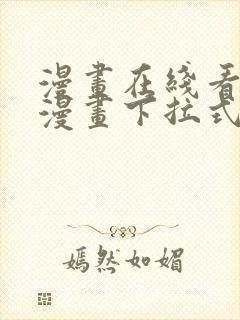 漫畫在綫看
漫畫下拉式
嫣然如媚